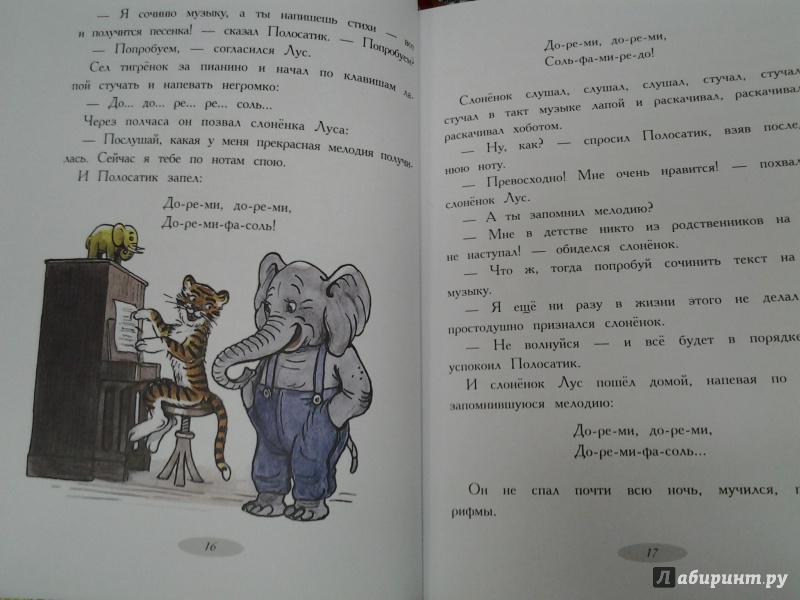 — Я сочиню музыку, а ты напишешь стихи — вот
и получится песенка! — сказал Полосатик. — Попробуем?
— Попробуем, — согласился Лус.
Сел тигрёнок за пианино и начал по клавишам ла-
пой стучать и напевать негромко:
— До... до... ре... ре... соль...
Через полчаса он позвал слонёнка Луса:
— Послушай, какая у меня прекрасная мелодия получи-
лась. Сейчас я тебе по нотам спою.
И Полосатик запел:
До-ре-ми, до-ре-ми,
До-ре-ми-фа-соль!
16
До-ре-ми, до-ре-ми,
Соль-фа-ми-ре-до!
Слонёнок слушал, слушал, слушал, стучал, стучал
стучал в такт музыке лапой и раскачивал, раскачивал
раскачивал хоботом.
— Ну, как? — спросил Полосатик, взяв послед
нюю ноту.
— Превосходно! Мне очень нравится! — похвал
слонёнок Лус.
— А ты запомнил мелодию?
— Мне в детстве никто из родственников на
не наступал! — обиделся слонёнок.
— Что ж, тогда попробуй сочинить текст на
музыку.
— Я ещё ни разу в жизни этого не делал
простодушно признался слонёнок.
— Не волнуйся — и всё будет в порядке
успокоил Полосатик.
И слонёнок Лус пошёл домой, напевая по
запомнившуюся мелодию:
До-ре-ми, до-ре-ми,
До-ре-ми-фа-соль...
Он не спал почти всю ночь, мучился, п
рифмы.
17
Лабиринт.ру